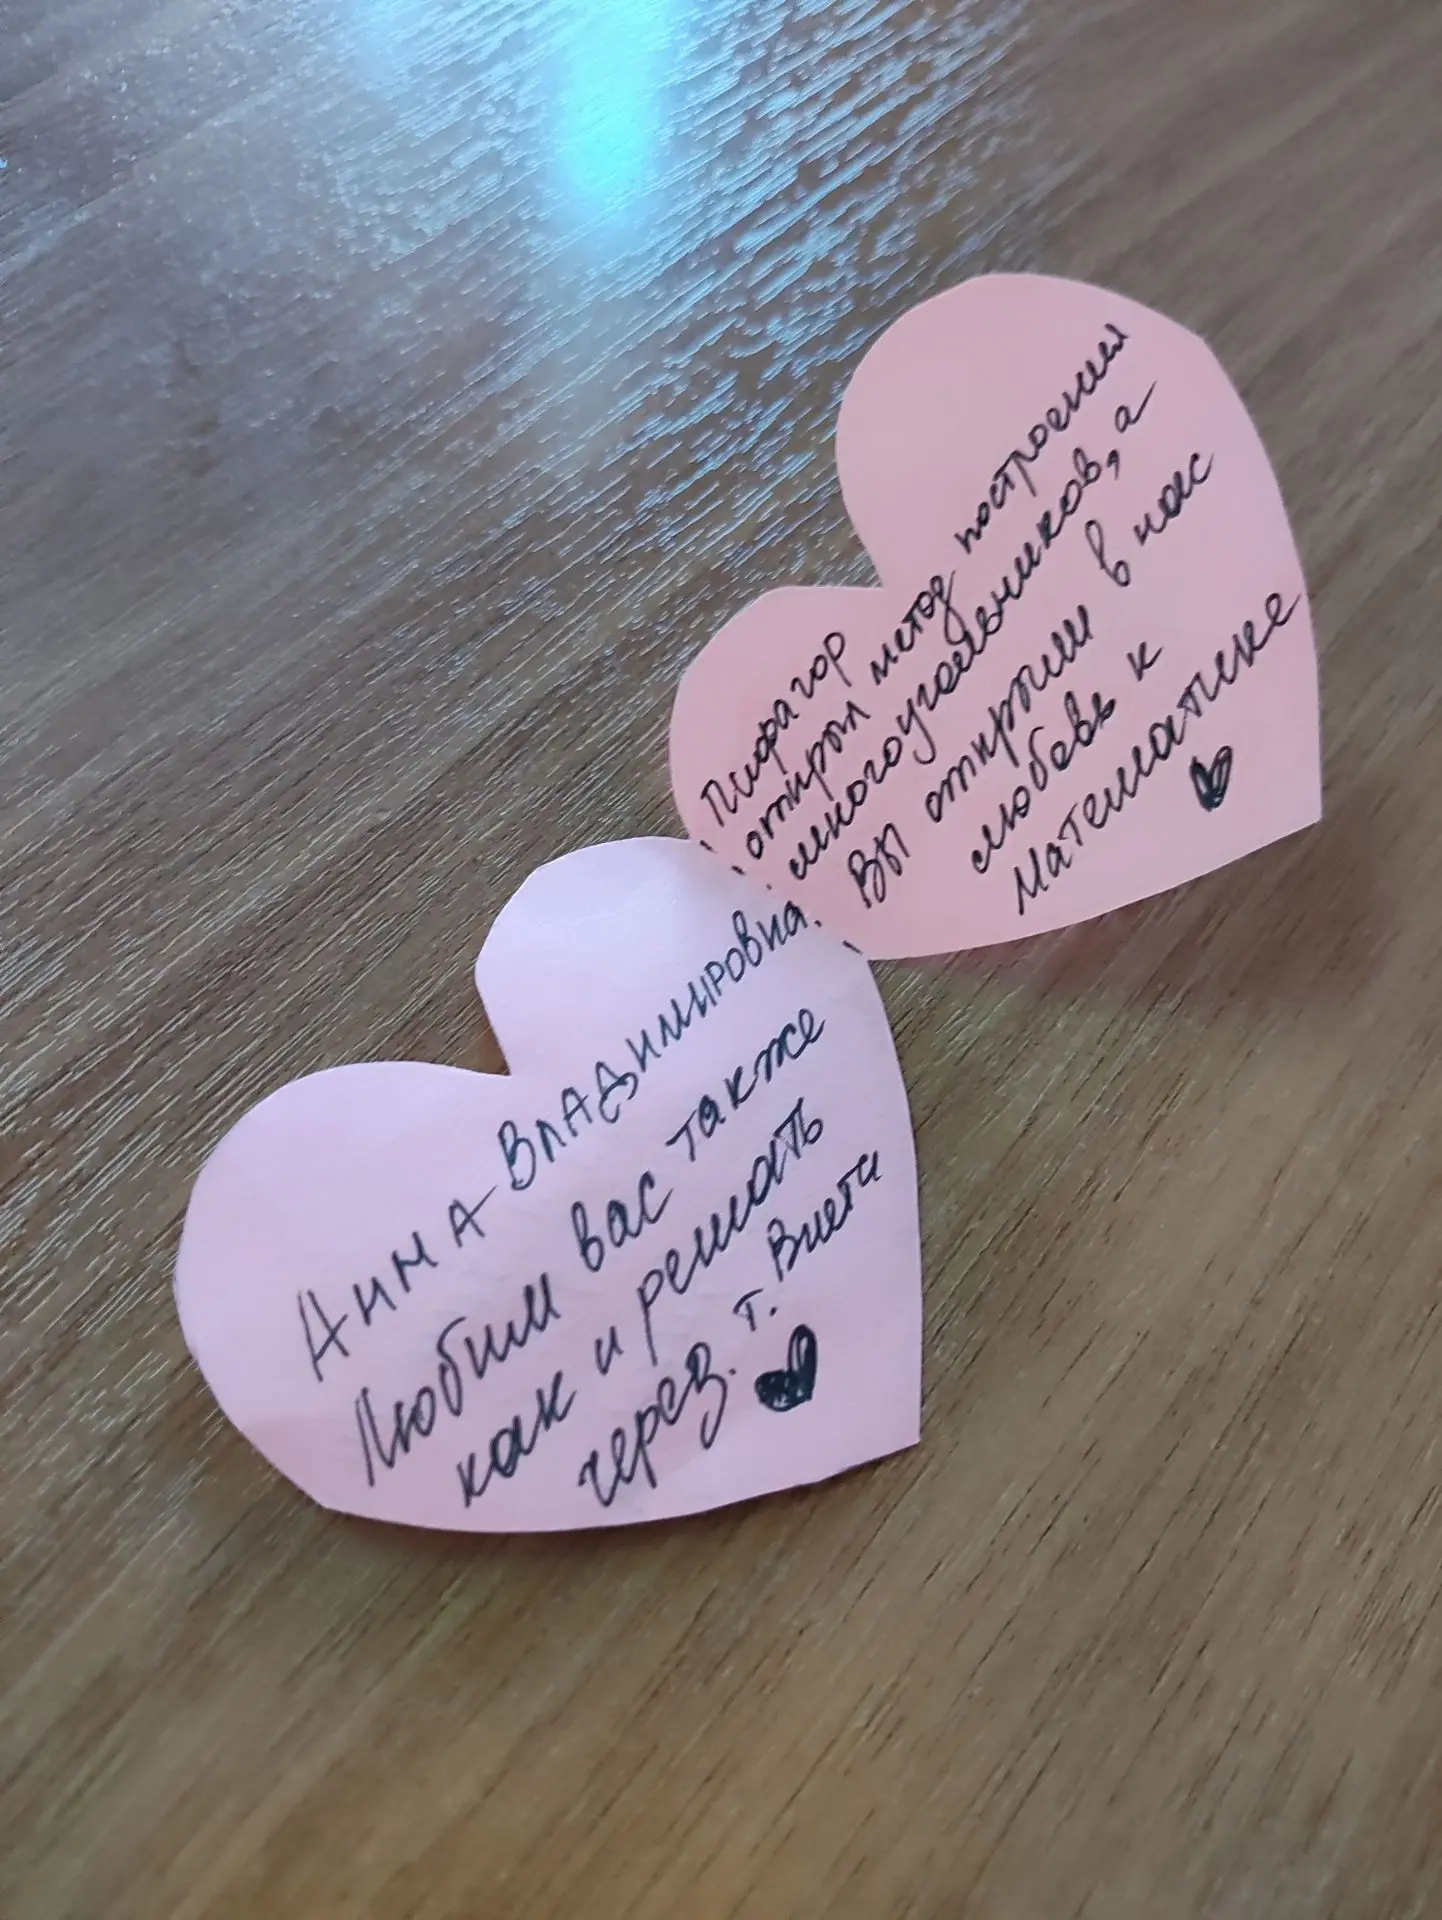 Пифагор
открыл метод построения
многоугольников, а
Вы открыли в нас
любовь к
Математике
Анна Владимировна.
Любим вас также
как и решать
через. т. Виета